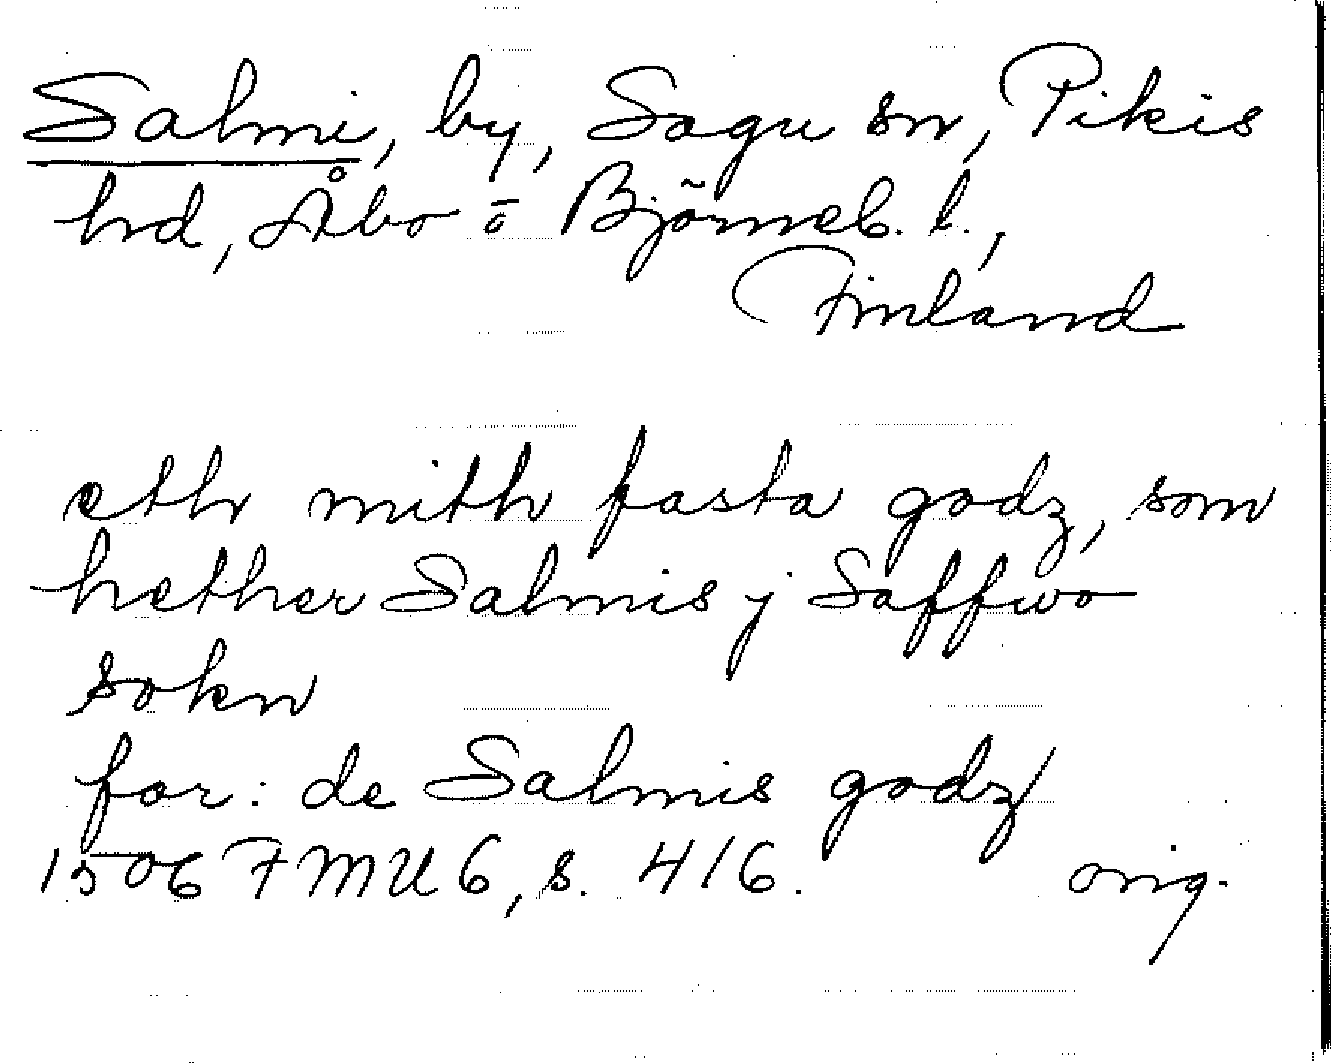 Salmi, by, Sagu sn, Pikis
hd, Åbo o Björneb. l.,
Finland
eth mith fasta godz, som
hether Salmis j Saffwo
sokn
for: de Salmis godz
1506 FMU 6, s. 416. orig.